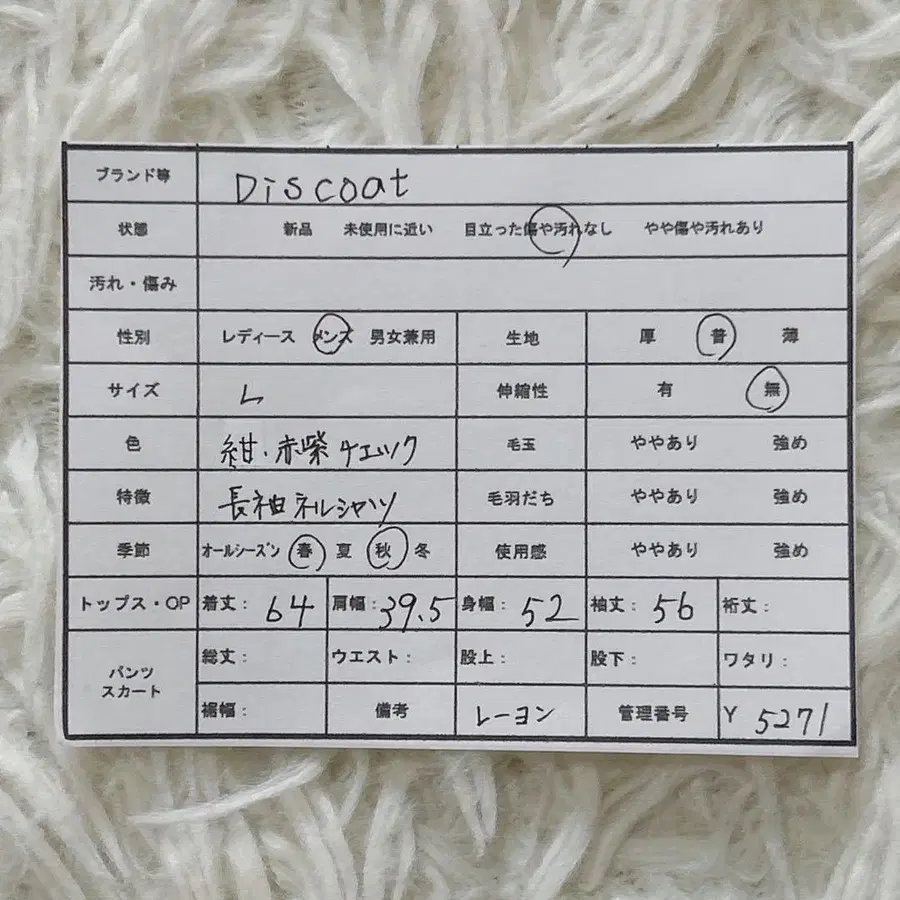 ブランド等 Discoat
状態 新品 未使用に近い 目立った傷や汚れなし やや傷や汚れあり
汚れ・傷み
性別 レディース メンズ 男女兼用 生地 厚 普 薄
サイズ L 伸縮性 有 無
色 紺・赤紫チェック 毛玉 ややあり 強め
特徴 長袖ネルシャツ 毛羽だち ややあり 強め
季節 オールシーズン 春 夏 秋 冬 使用感 ややあり 強め
トップス・OP 着丈: 64 肩幅: 39.5 身幅: 52 袖丈: 56 裄丈:
パンツ スカート 総丈: ウエスト: 股上: 股下: ワタリ:
裾幅: 備考 レーヨン 管理番号 Y 5271